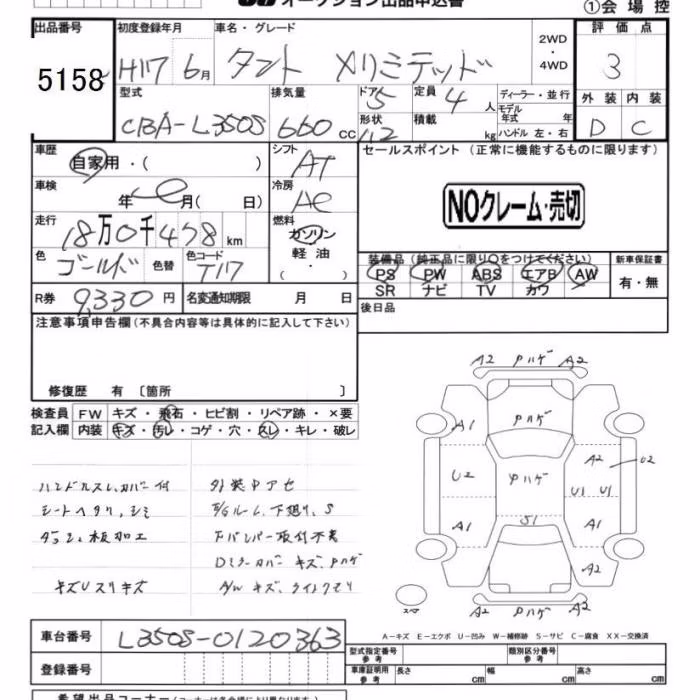 オークション出品申込書
①会場控
出品番号 初度登録年月 車名・グレード 2WD・4WD 評価点
5158 H17 6月 タント Xリミテッド 3
型式 排気量 ドア 定員 ディーラー・並行 外装 内装
CBA-L350S 660 cc 5 4 人 モデル年式 年 D C
形状 積載 kg ハンドル 左・右
車歴 シフト セールスポイント (正常に機能するものに限ります)
自家用・( ) AT
車検 冷房 NOクレーム・売切
年 月( 日) AC
走行 燃料
18万0千478km ガソリン・軽油・( )
色 色替 色コード 装備品(純正品に限り○をつけてください) 新車保証書
ゴールド T17 PS PW ABS エアB AW 有・無
SR ナビ TV カワ
R券 9,330円 名変通知期限 月 日 後日品
注意事項申告欄(不具合内容等は具体的に記入して下さい)
修復歴 有 〔箇所 〕
検査員 FW キズ・飛石・ヒビ割・リペア跡・×要
記入欄 内装 キズ・汚レ・コゲ・穴・スレ・キレ・破レ
ハンドルスレ、カバー付 外装中アセ
シートヘタリ、シミ E/Gルーム、下廻り、S
ダッシュ板加工 Fバンパー取付不良
Dミラーカバーキズ、Pハゲ
キズUスリキズ A/Wキズ、ライトクモリ
A2 Pハゲ A2
Pハゲ
A1
A2 U2
U2 Pハゲ U1 U1
A1 S1 A1
A2
スペア
A2 Pハゲ A2
A-キズ E-エクボ U-凹み W-補修跡 S-サビ C-腐食 XX-交換済
車台番号 L350S-0120363
型式指定番号 参考 類別区分番号 参考
登録番号 車庫証明用 参考 長さ cm 幅 cm 高さ cm
希望出品コーナー